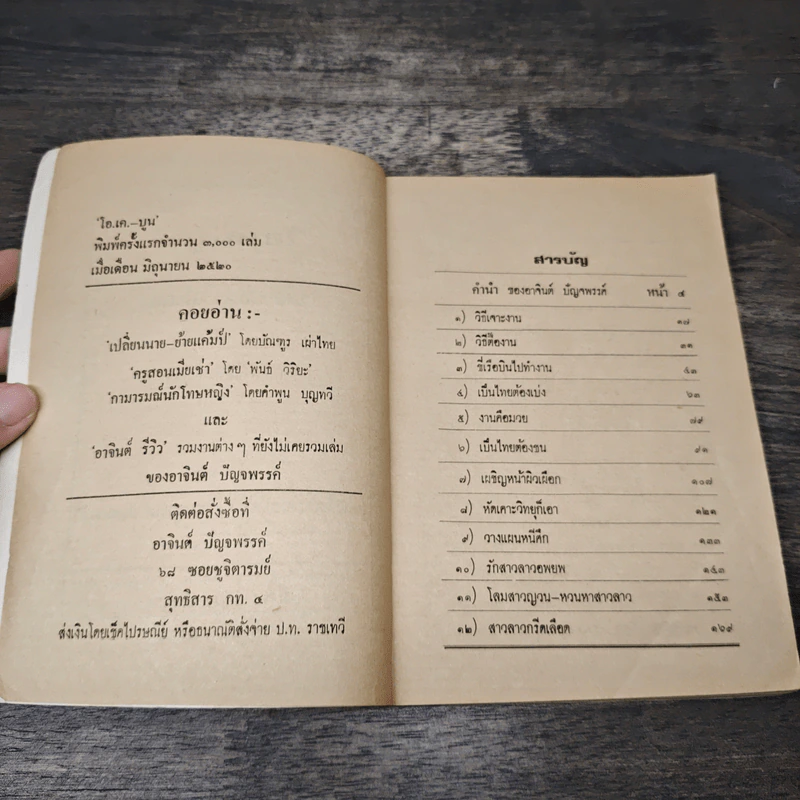 'โอ.เค.-บูน'
พิมพ์ครั้งแรกจำนวน ๓,๐๐๐ เล่ม
เมื่อเดือน มิถุนายน ๒๕๒๐
คอยอ่าน :-
'เปลี่ยนนาย-ย้ายแค้มป์' โดยบัณฑูร เผ่าไทย
'ครูสอนเมียเช่า' โดย 'พันธ์ วิริยะ'
'กามารมณ์นักโทษหญิง' โดยคำพูน บุญทวี
และ
'อาจินต์ รีวิว' รวมงานต่าง ๆ ที่ยังไม่เคยรวมเล่ม
ของอาจินต์ ปัญจพรรค์
ติดต่อสั่งซื้อที่
อาจินต์ ปัญจพรรค์
๖๘ ซอยชูจิตารมย์
สุทธิสาร กท. ๔
ส่งเงินโดยเช็คไปรษณีย์ หรือธนาณัติสั่งจ่าย ป.ท. ราชเทวี
สารบัญ
คำนำ ของอาจินต์ ปัญจพรรค์ หน้า ๔
๑) วิธีเจาะงาน ๑๗
๒) วิธีต้องาน ๓๑
๓) ขี่เรือบินไปทำงาน ๔๓
๔) เป็นไทยต้องเบ่ง ๖๓
๕) งานคือมวย ๗๙
๖) เป็นไทยต้องชน ๙๑
๗) เผชิญหน้าผิวเผือก ๑๐๗
๘) หัดเคาะวิทยุก็เอา ๑๒๑
๙) วางแผนหนีคึก ๑๓๓
๑๐) รักสาวลาวอพยพ ๑๔๓
๑๑) โลมสาวญวน-หวนหาสาวลาว ๑๕๓
๑๒) สาวลาวกรีดเลือด ๑๖๙